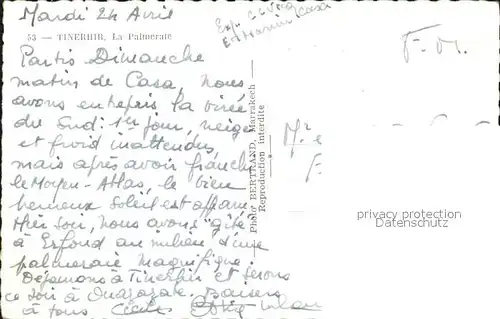 Mardi 24 Avril
53 — TINERHIR, La Palmeraie
Partis Dimanche
matin de Casa, nous
avons entrepris la virée
du Sud: 1er jour, neige
et froid inattendus,
mais après avoir franchi
le Moyen-Atlas, le bien
heureux soleil est apparu.
Hier soir, nous avons "gîté"
à Erfoud au milieu d'une
palmeraie magnifique.
Déjeunons à Tinerhir et serons
ce soir à Ouarzazate. Baisers
à tous
Exp.
Casa
Photo BERTRAND, Marrakech —
Reproduction interdite
Mr e
privacy protection
Datenschutz